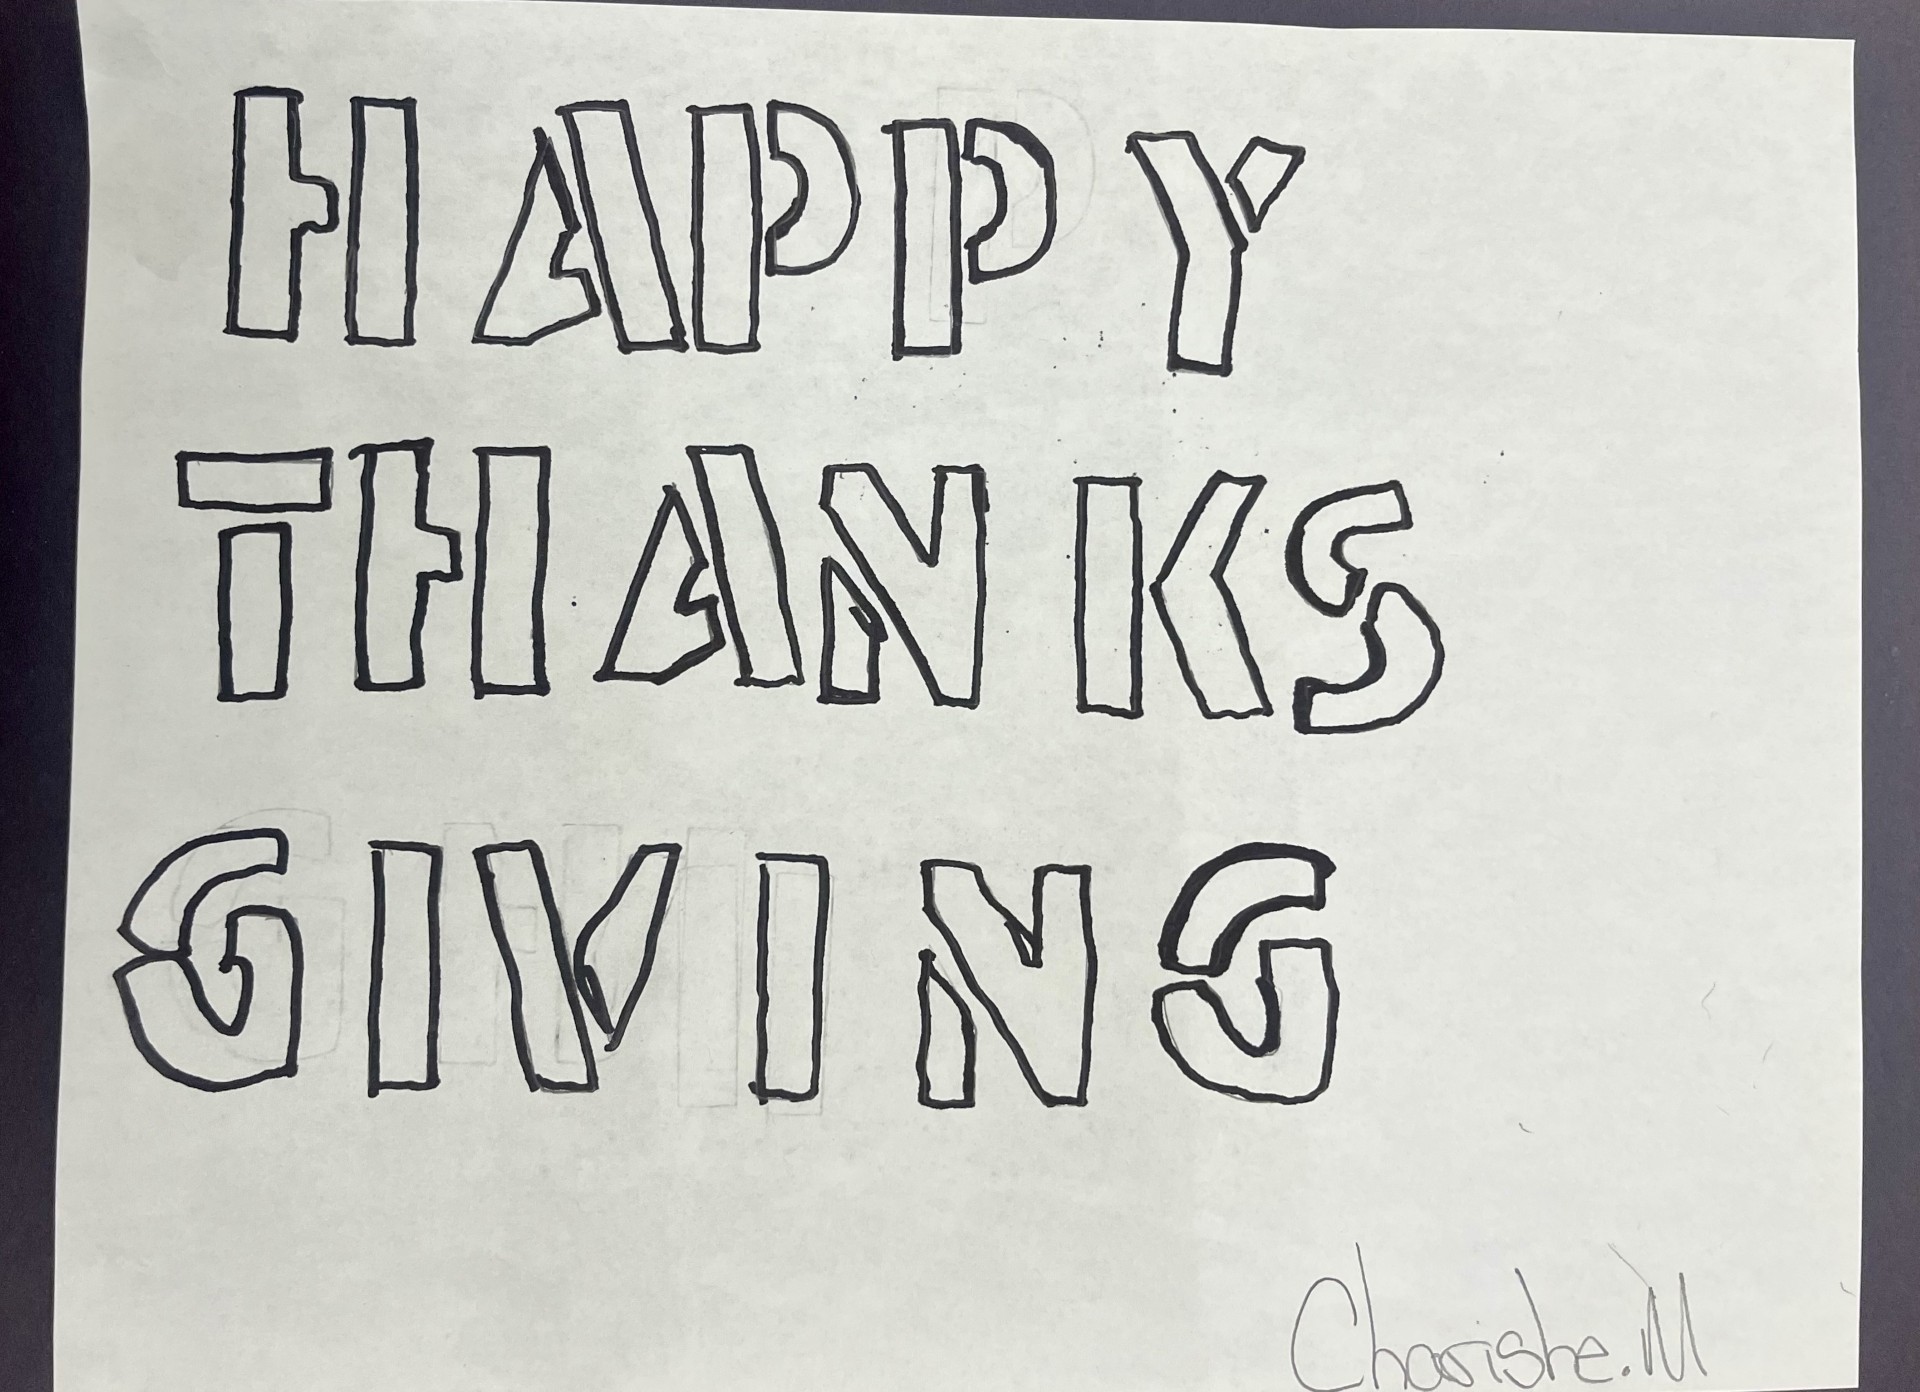 HAPPY
THANKS
GIVING
Charishe.M